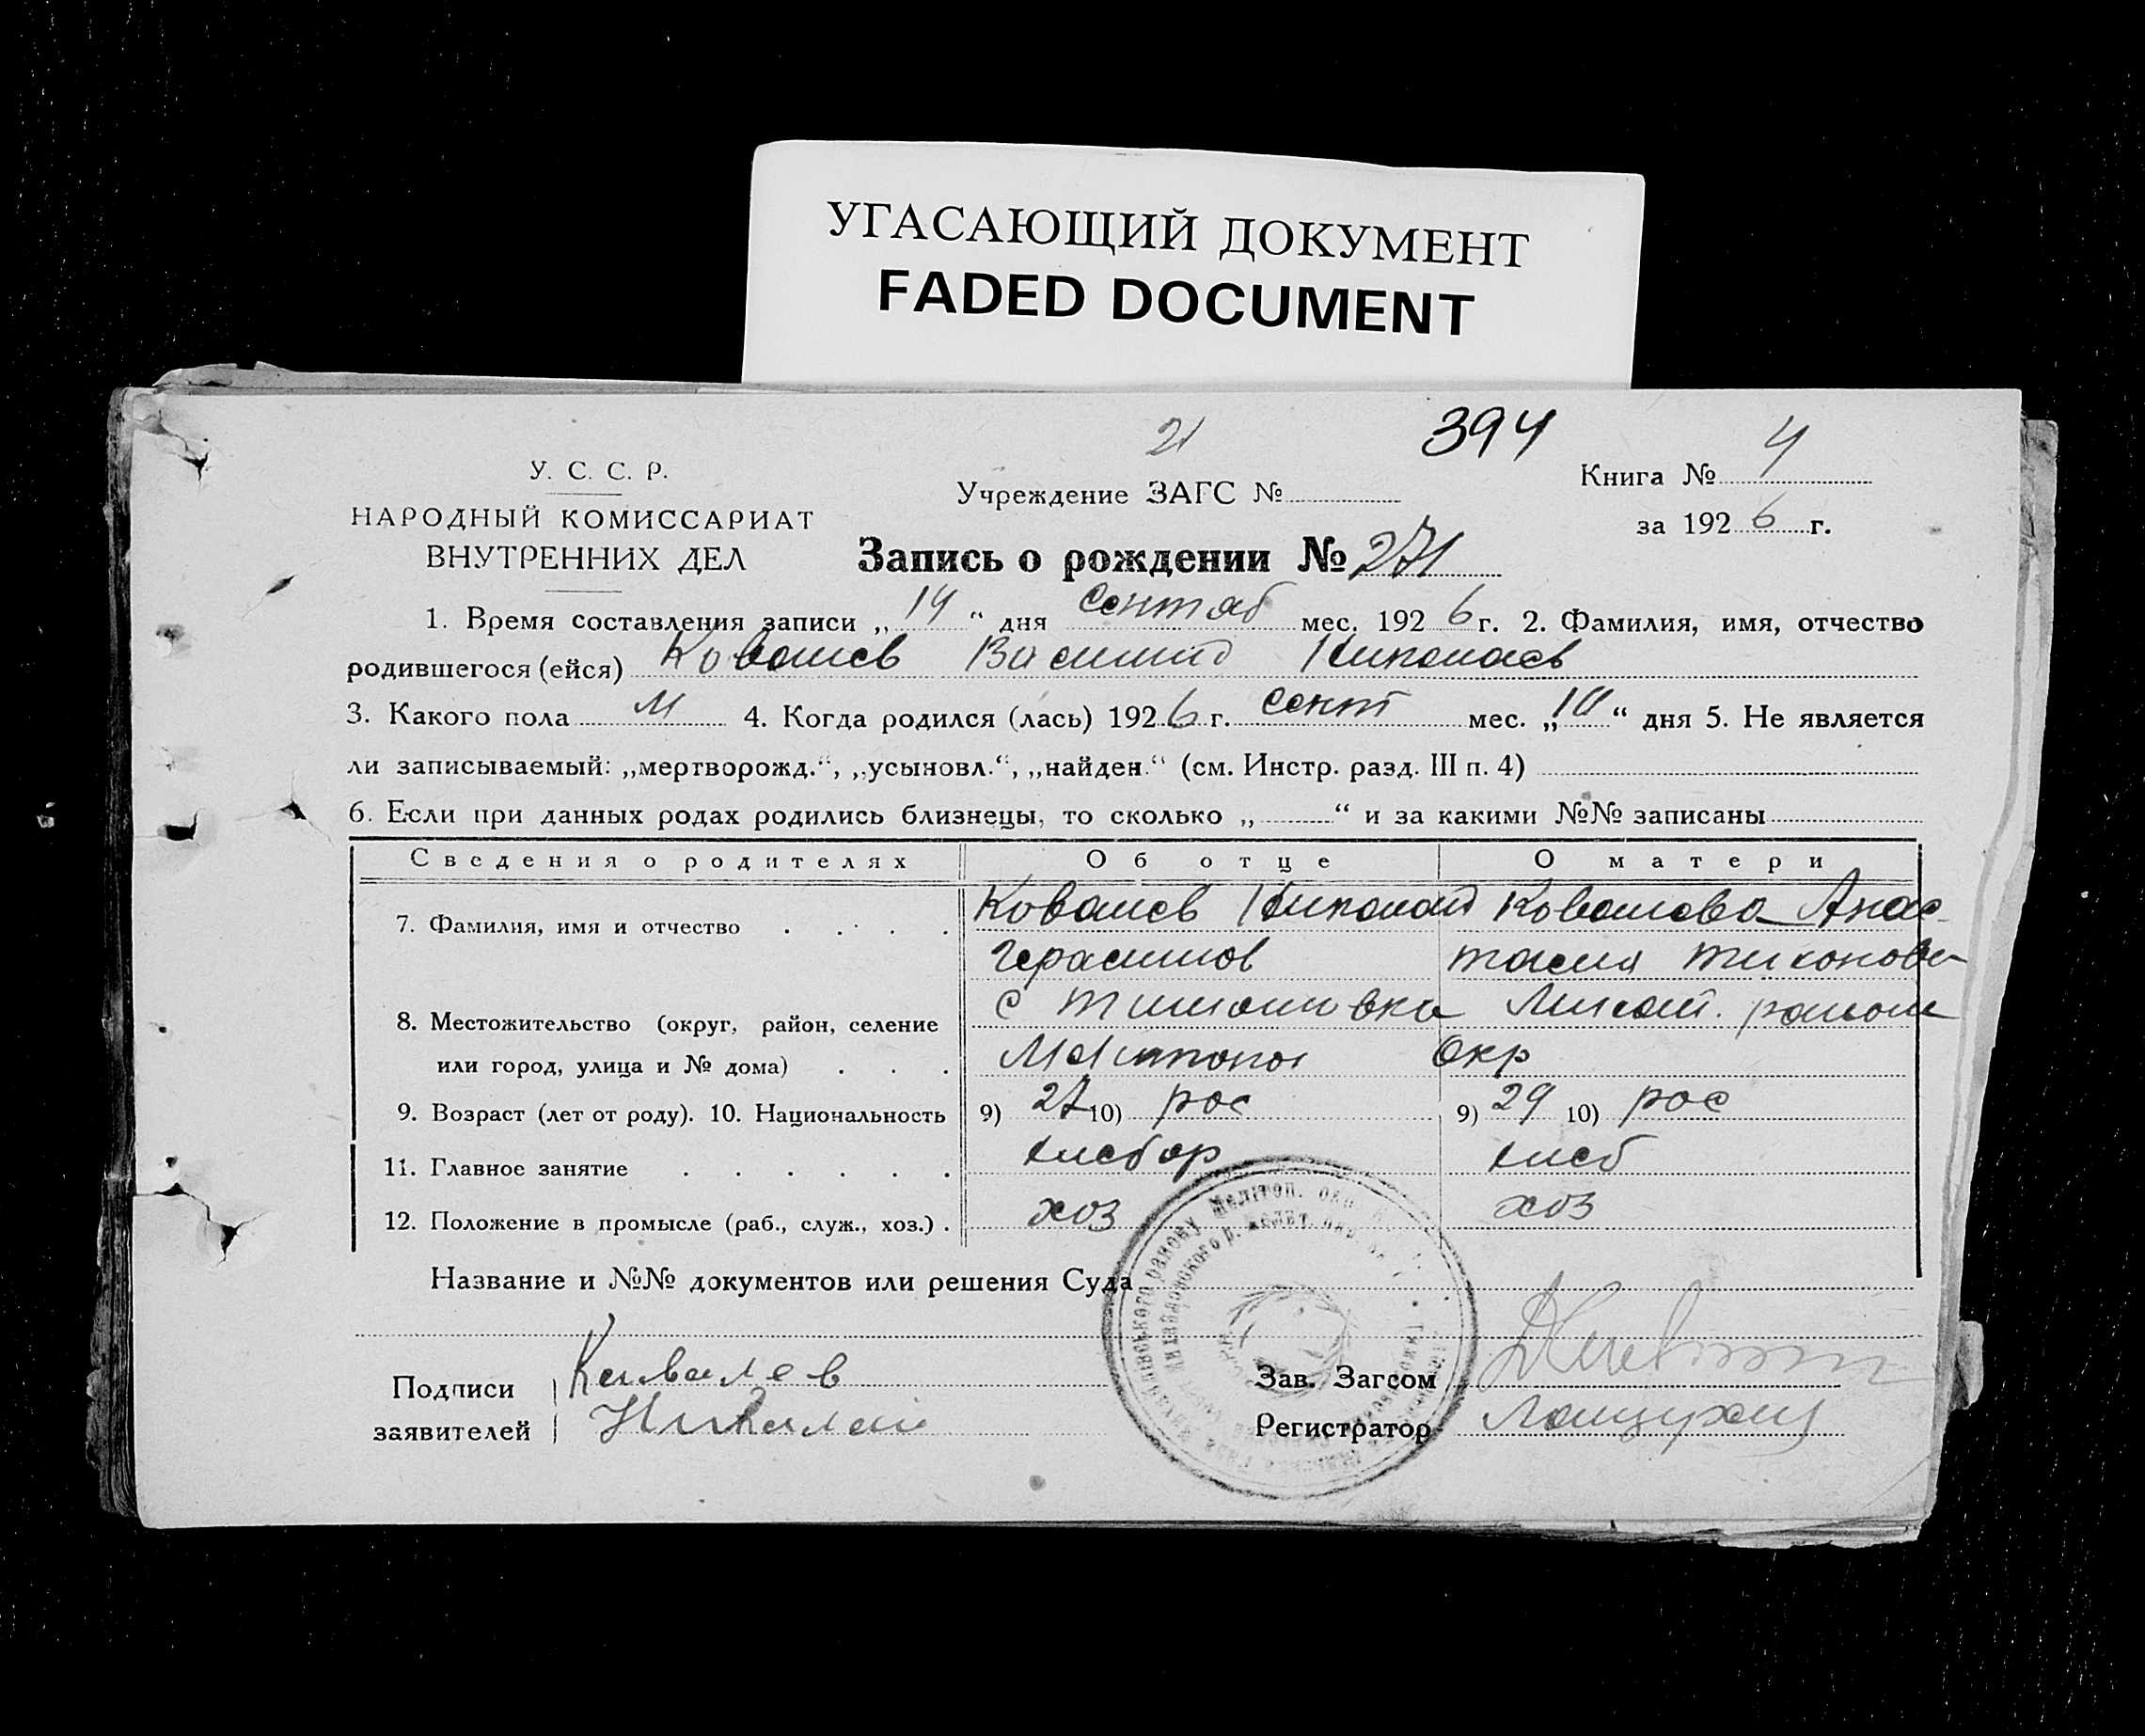 УГАСАЮЩИЙ ДОКУМЕНТ
FADED DOCUMENT
21 394
У. С. С. Р.
Учреждение ЗАГС №
Книга № 4
НАРОДНЫЙ КОМИССАРИАТ
ВНУТРЕННИХ ДЕЛ
за 1926 г.
Запись о рождении № 271
1. Время составления записи „14“ дня сентяб мес. 1926 г. 2. Фамилия, имя, отчество
родившегося (ейся) Ковалев Василий Николаев
3. Какого пола М 4. Когда родился (лась) 1926 г. сент мес. „10“ дня 5. Не является
ли записываемый: „мертворожд.“, „усыновл.“, „найден.“ (см. Инстр. разд. III п. 4)
6. Если при данных родах родились близнецы, то сколько „ “ и за какими №№ записаны
Сведения о родителях Об отце О матери
7. Фамилия, имя и отчество . . . . Ковалев Николай Ковалева Анас-
Герасимов тасия Тихонов
8. Местожительство (округ, район, селение с Тимошовка района
или город, улица и № дома) . . . Мелитопол Окр
9. Возраст (лет от роду). 10. Национальность 9) 27 10) рос 9) 29 10) рос
11. Главное занятие . . . . . . хлебор хлеб
12. Положение в промысле (раб., служ., хоз.) . хоз хоз
Название и №№ документов или решения Суда
Подписи Ковалев
заявителей Николай
Зав. Загсом
Регистратор